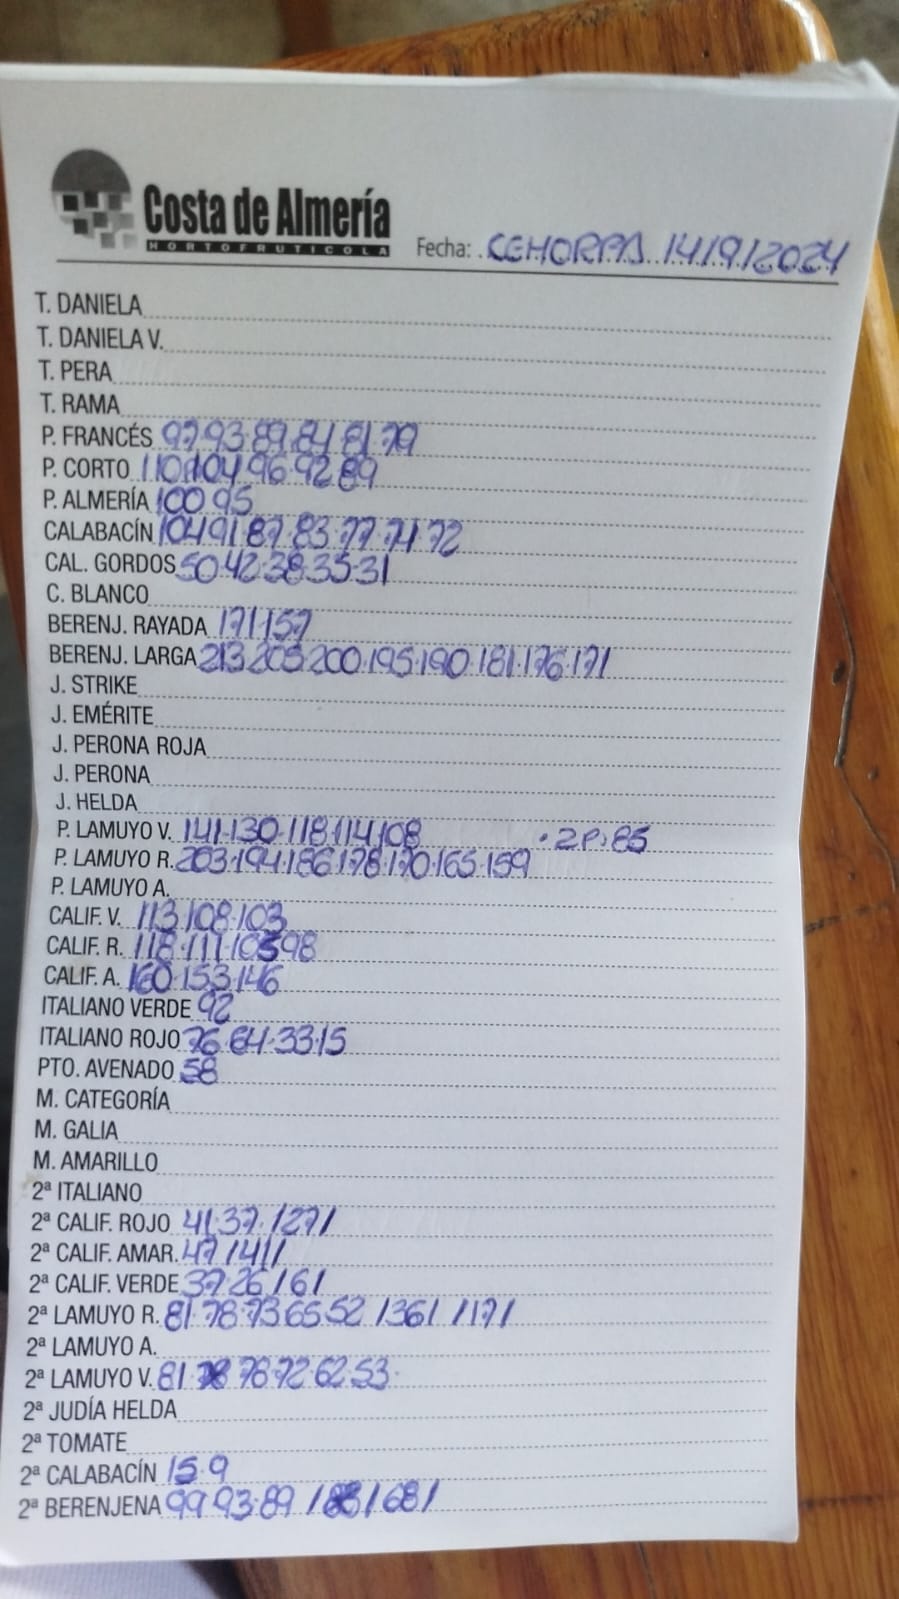 Costa de Almería
HORTOFRUTICOLA
Fecha: CEHORPA 14/9/2024
T. DANIELA
T. DANIELA V.
T. PERA
T. RAMA
P. FRANCÉS 97.93.89.84.81.79
P. CORTO 110.104.96.92.89
P. ALMERÍA 100.95
CALABACÍN 104.91.87.83.77.74.72
CAL. GORDOS 50.42.38.35.31
C. BLANCO
BERENJ. RAYADA 171.157
BERENJ. LARGA 213.205.200.195.190.181.176.171
J. STRIKE
J. EMÉRITE
J. PERONA ROJA
J. PERONA
J. HELDA
P. LAMUYO V. 141.130.118.114.108 .2P.85
P. LAMUYO R. 203.194.186.178.170.165.159
P. LAMUYO A.
CALIF. V. 113.108.103
CALIF. R. 118.111.105.98
CALIF. A. 160.153.146
ITALIANO VERDE 92
ITALIANO ROJO 76.64.33.15
PTO. AVENADO 58
M. CATEGORÍA
M. GALIA
M. AMARILLO
2ª ITALIANO
2ª CALIF. ROJO 41.37./27/
2ª CALIF. AMAR. 47/41/
2ª CALIF. VERDE 37.26/6/
2ª LAMUYO R. 81.78.73.65.52 /36/ /17/
2ª LAMUYO A.
2ª LAMUYO V. 81.78.72.62.53.
2ª JUDÍA HELDA
2ª TOMATE
2ª CALABACÍN 15.9
2ª BERENJENA 99.93.89 / /68/